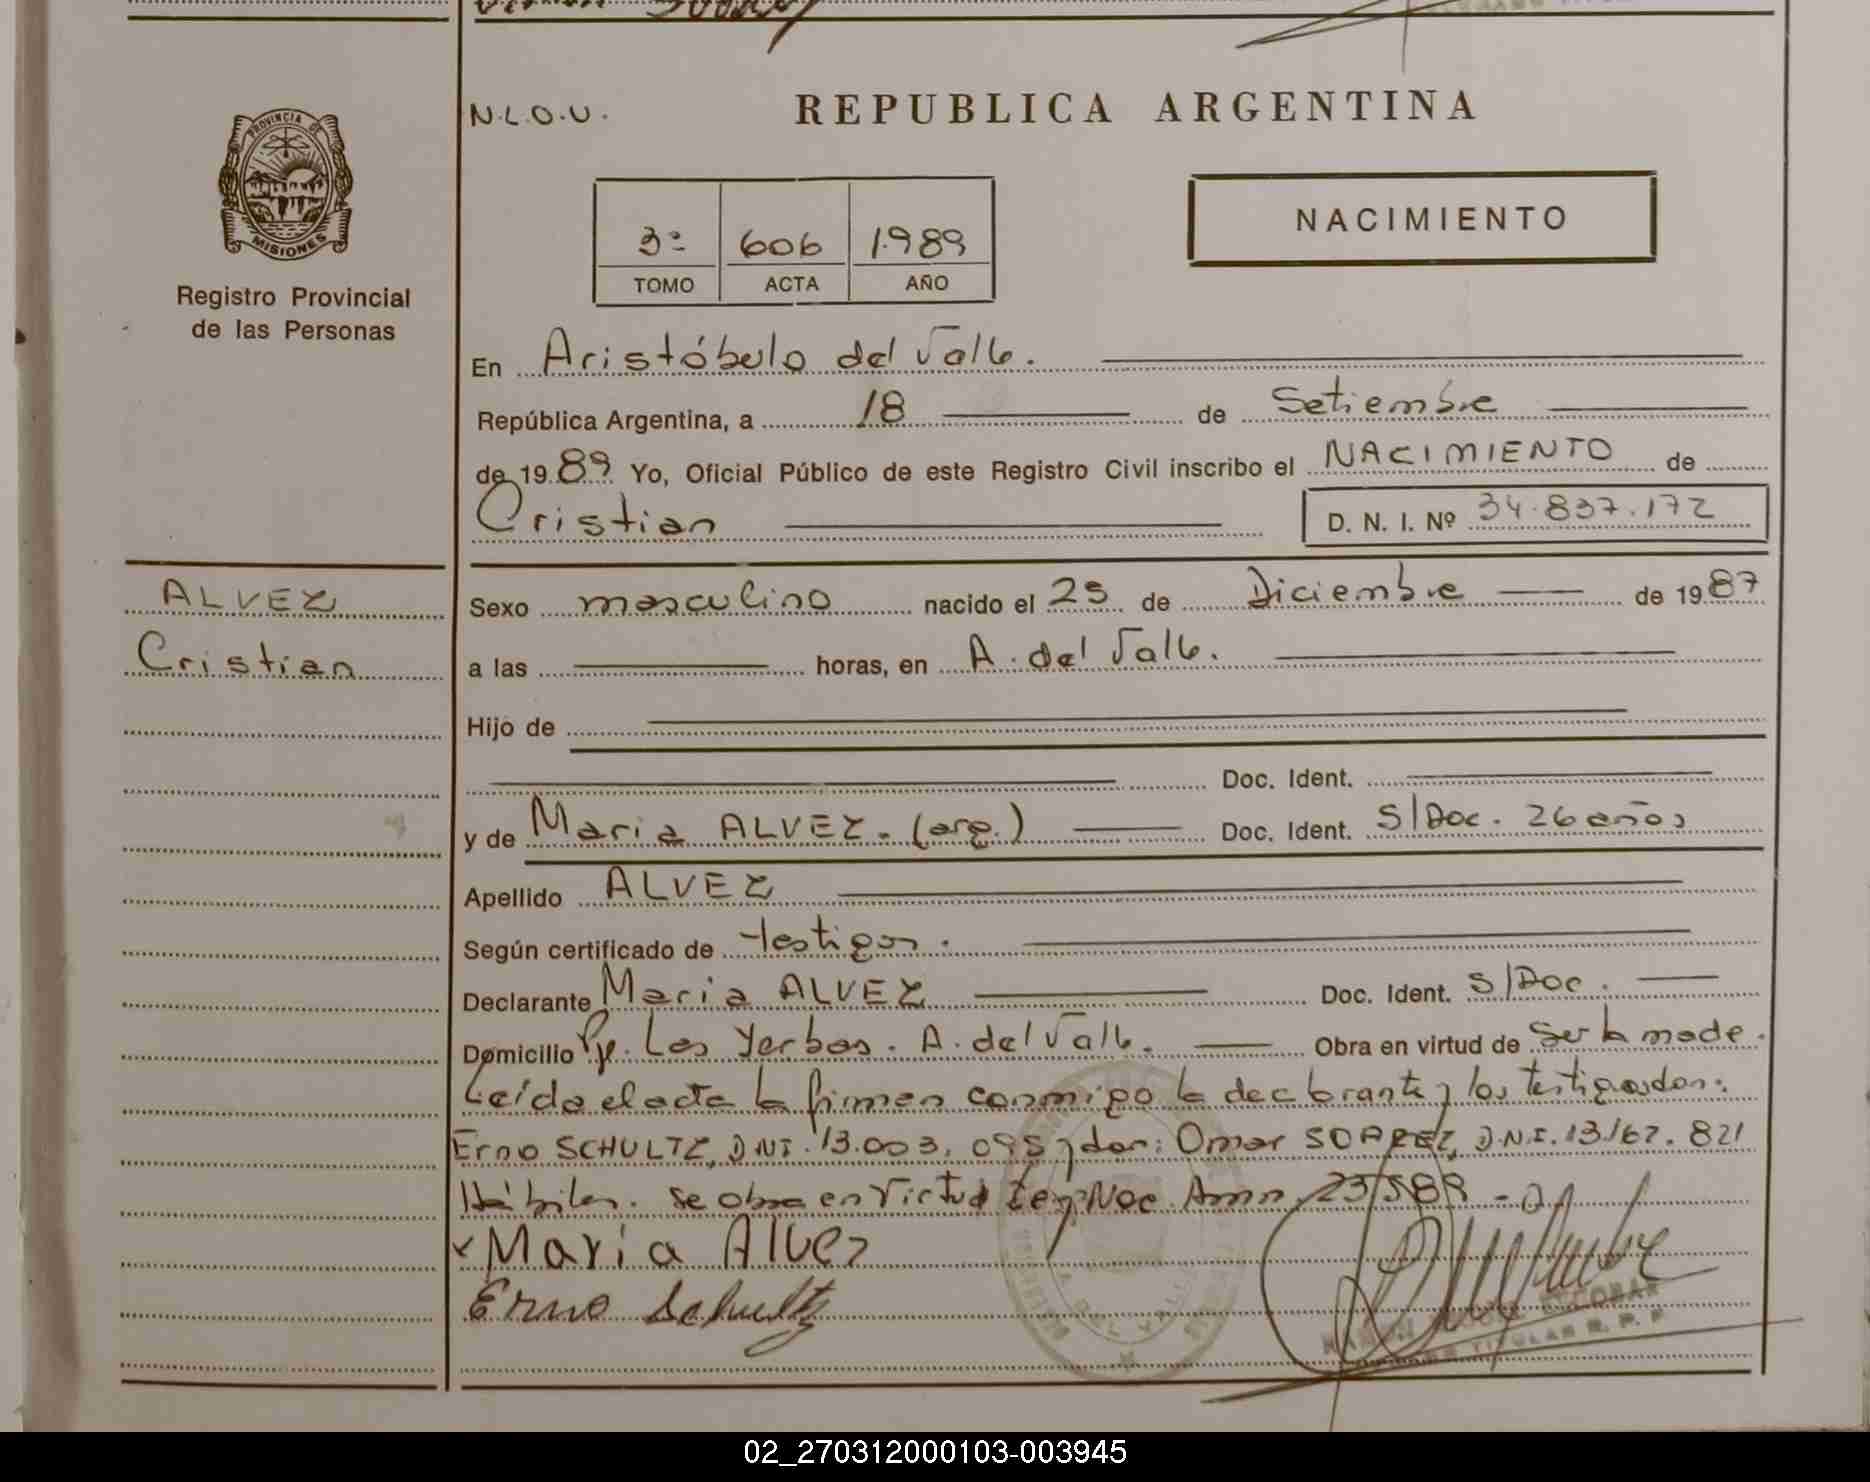 N.L.O.U.
REPUBLICA ARGENTINA
PROVINCIA DE
MISIONES
Registro Provincial
de las Personas
3º 606 1.989
TOMO ACTA AÑO
NACIMIENTO
En Aristóbulo del Valle.
República Argentina, a 18 de Setiembre
de 1989 Yo, Oficial Público de este Registro Civil inscribo el NACIMIENTO de
Cristian D. N. I. Nº 34.837.172
ALVEZ
Cristian
Sexo masculino nacido el 25 de Diciembre de 1987
a las horas, en A. del Valle.
Hijo de
Doc. Ident.
y de Maria ALVEZ. (arg.) Doc. Ident. S/Doc. 26 años
Apellido ALVEZ
Según certificado de testigos.
Declarante Maria ALVEZ Doc. Ident. S/Doc.
Domicilio Pje. Las Yerbas. A. del Valle. Obra en virtud de Ser la madre.
Leída el acta la firman conmigo la declarante y los testigos don:
Erno SCHULTZ, D.N.I. 13.003.095 y don: Omar SOAREZ, D.N.I. 13.167.821
Hábiles. Se obra en Virtud Ley Nac. Amn. 23/589
x Maria Alvez
Erno Schultz
ESCOBAR
TITULAR R. P. P.
02_270312000103-003945